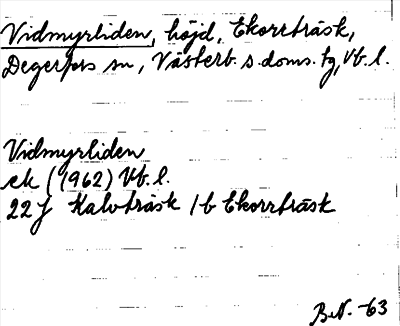 Vidmyrliden, höjd, Ekorrträsk,
Degerfors sn, Västerb. s. doms. tg, Vb. l.
Vidmyrliden
ek (1962) Vb. l.
22 J Kalvträsk 1 b Ekorrträsk
B.N. -63